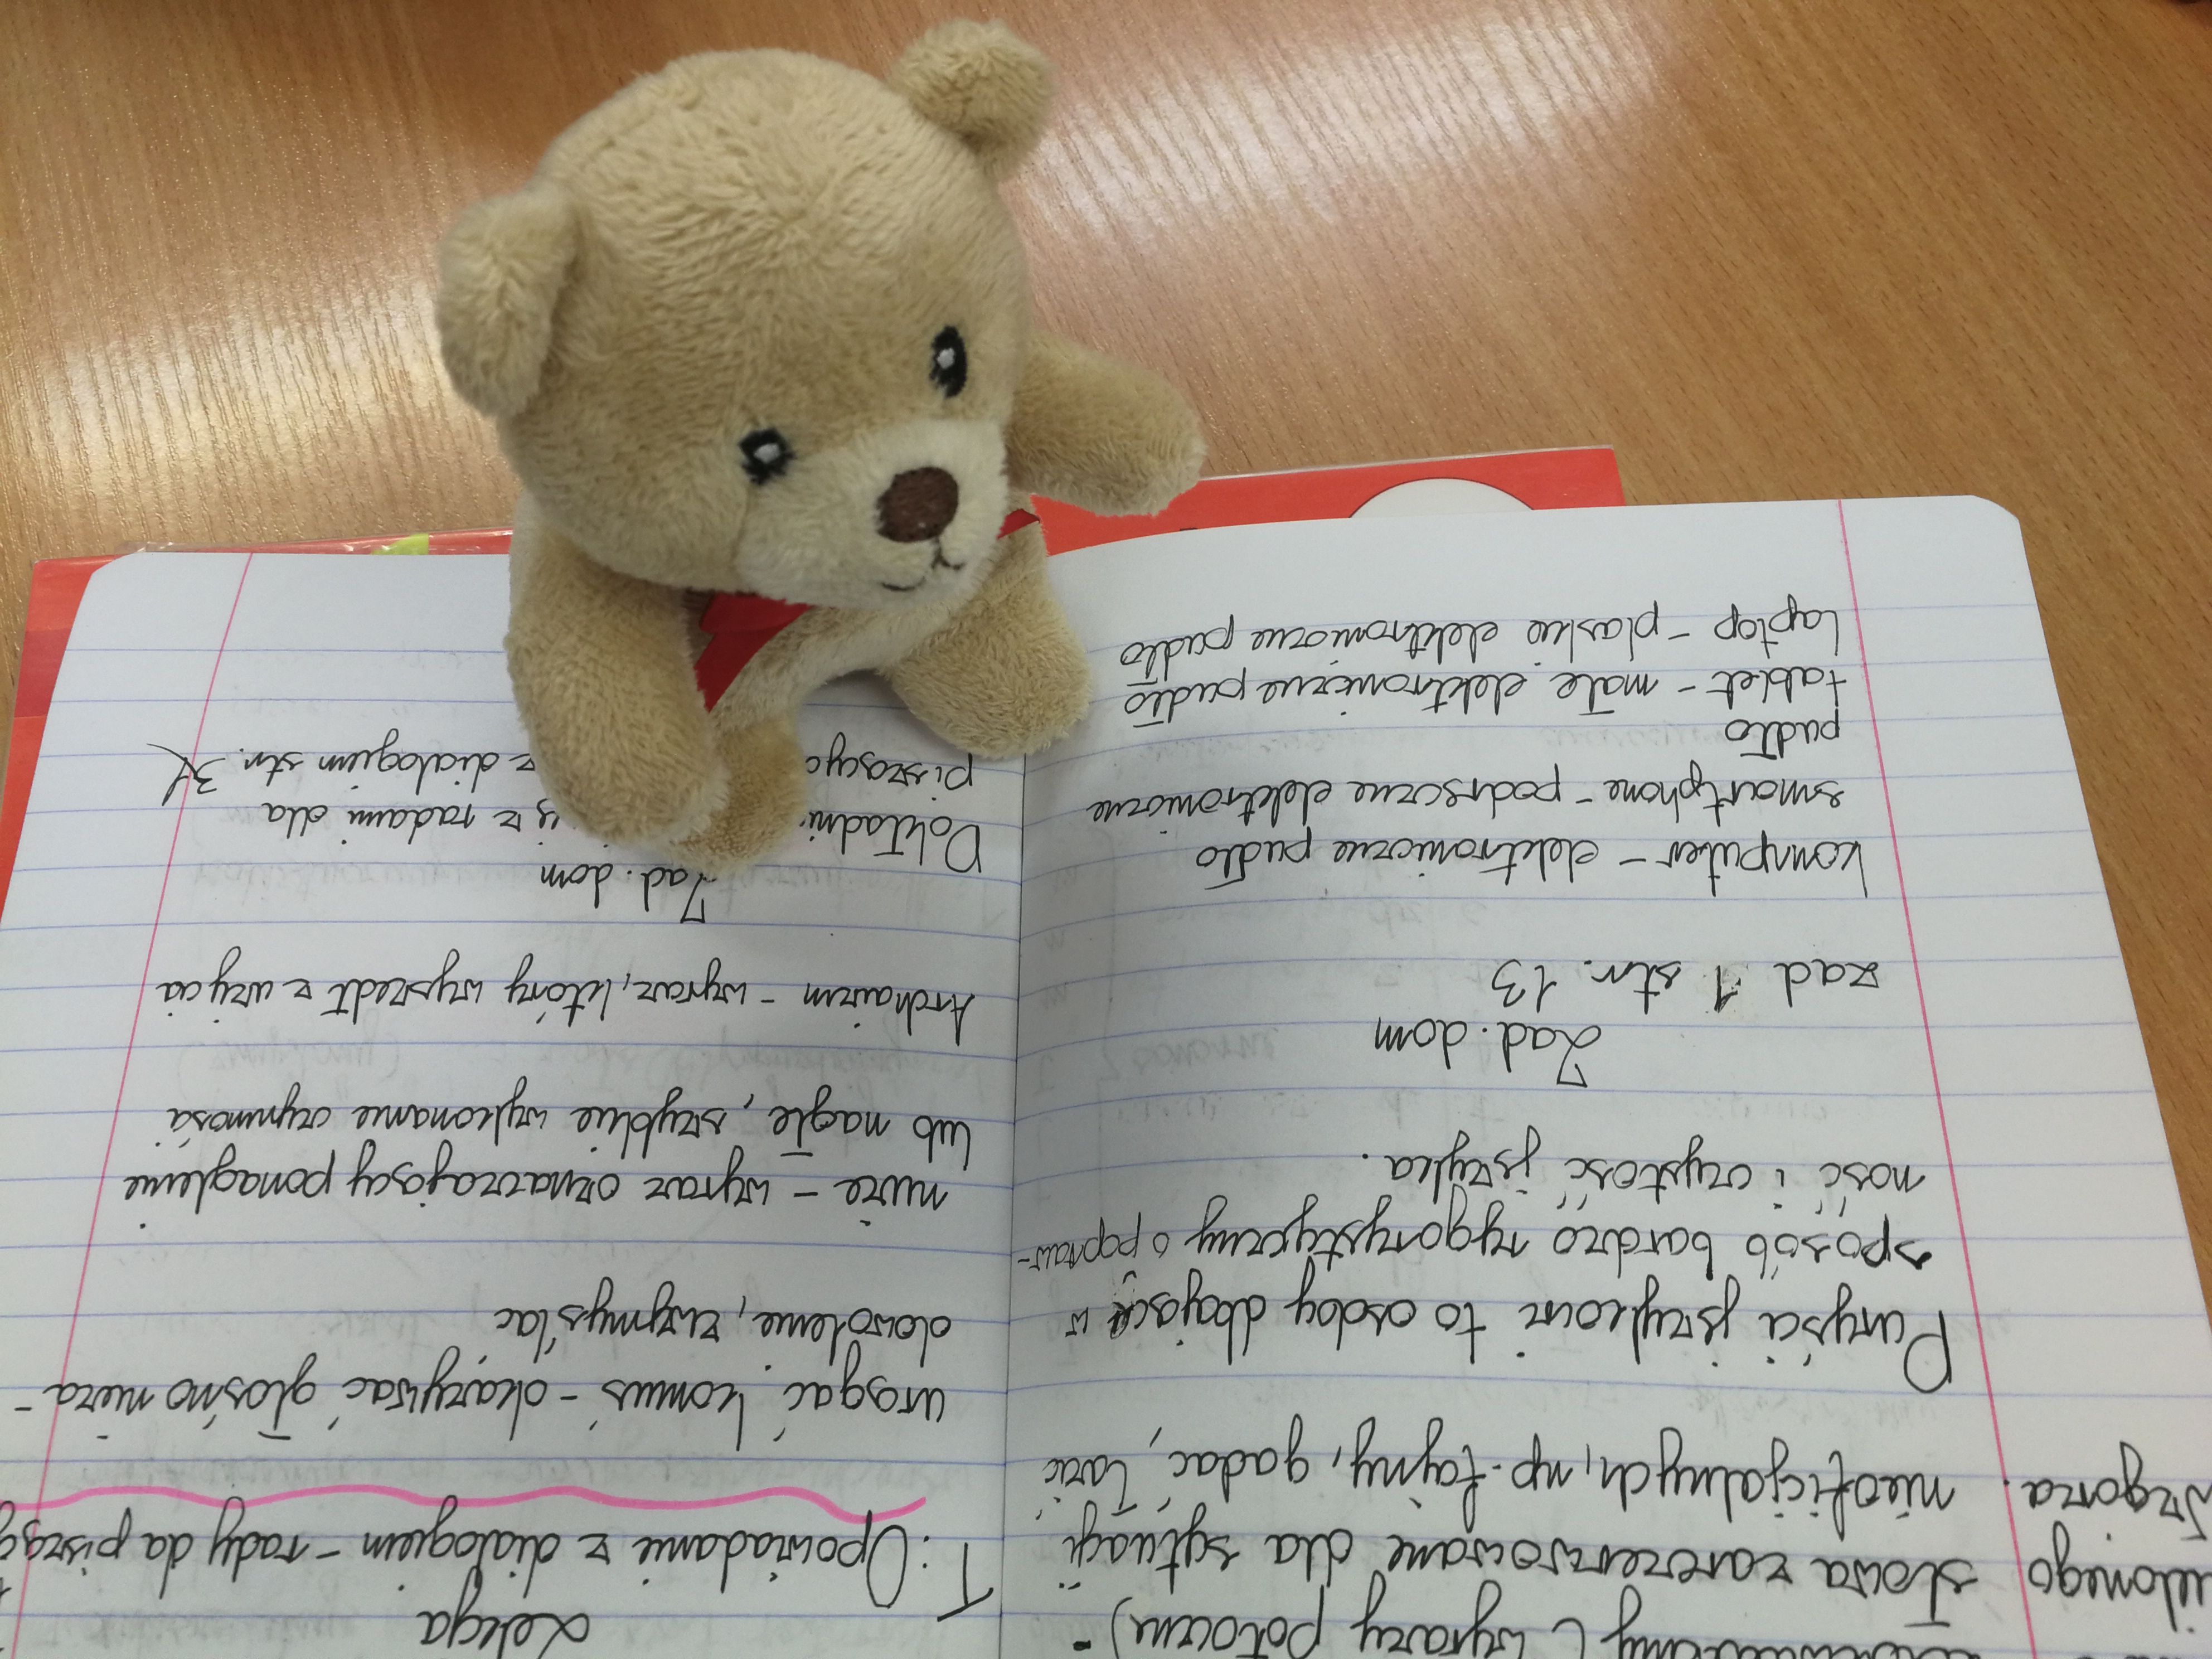 (wyrazy potoczne) -
słowa zarezerwowane dla sytuacji
nieoficjalnych, np. fajny, gadać, łazić
Puryści językowi to osoby dbające w
sposób bardzo rygorystyczny o popraw-
ność i czystość języka.
Zad. dom
zad 1 str. 13
komputer - elektroniczne pudło
smartphone - podręczne elektroniczne
pudło
tablet - małe elektroniczne pudło
laptop - płaskie elektroniczne pudło
Lekcja
T: Opowiadanie z dialogiem - rady da
urągać komuś - okazywać głośno nieza-
dowolenie, wymyślać
nuże - wyraz oznaczający ponaglenie
lub nagłe, szybkie wykonanie czynności
Archaizm - wyraz, który wyszedł z użycia
Zad. dom
z radami dla
z dialogiem str. 31